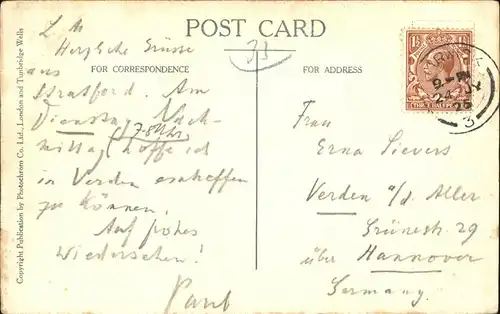 POST CARD
L. M.
Herzliche Grüsse
33
FOR CORRESPONDENCE
FOR ADDRESS
aus
Stratford. Am
Dienstag Nach-
(7-8 Uhr)
mittag hoffe ich
in Verden eintreffen
zu können.
Auf frohes
Wiedersehen!
Paul
Frau
Erna Sievers
Verden a/d. Aller
Grünestr. 29
über Hannover
Germany.
Copyright Publication by Photochrom Co. Ltd., London and Tunbridge Wells
THREE HALFPENCE
1½
9 - PM
24 JY
3